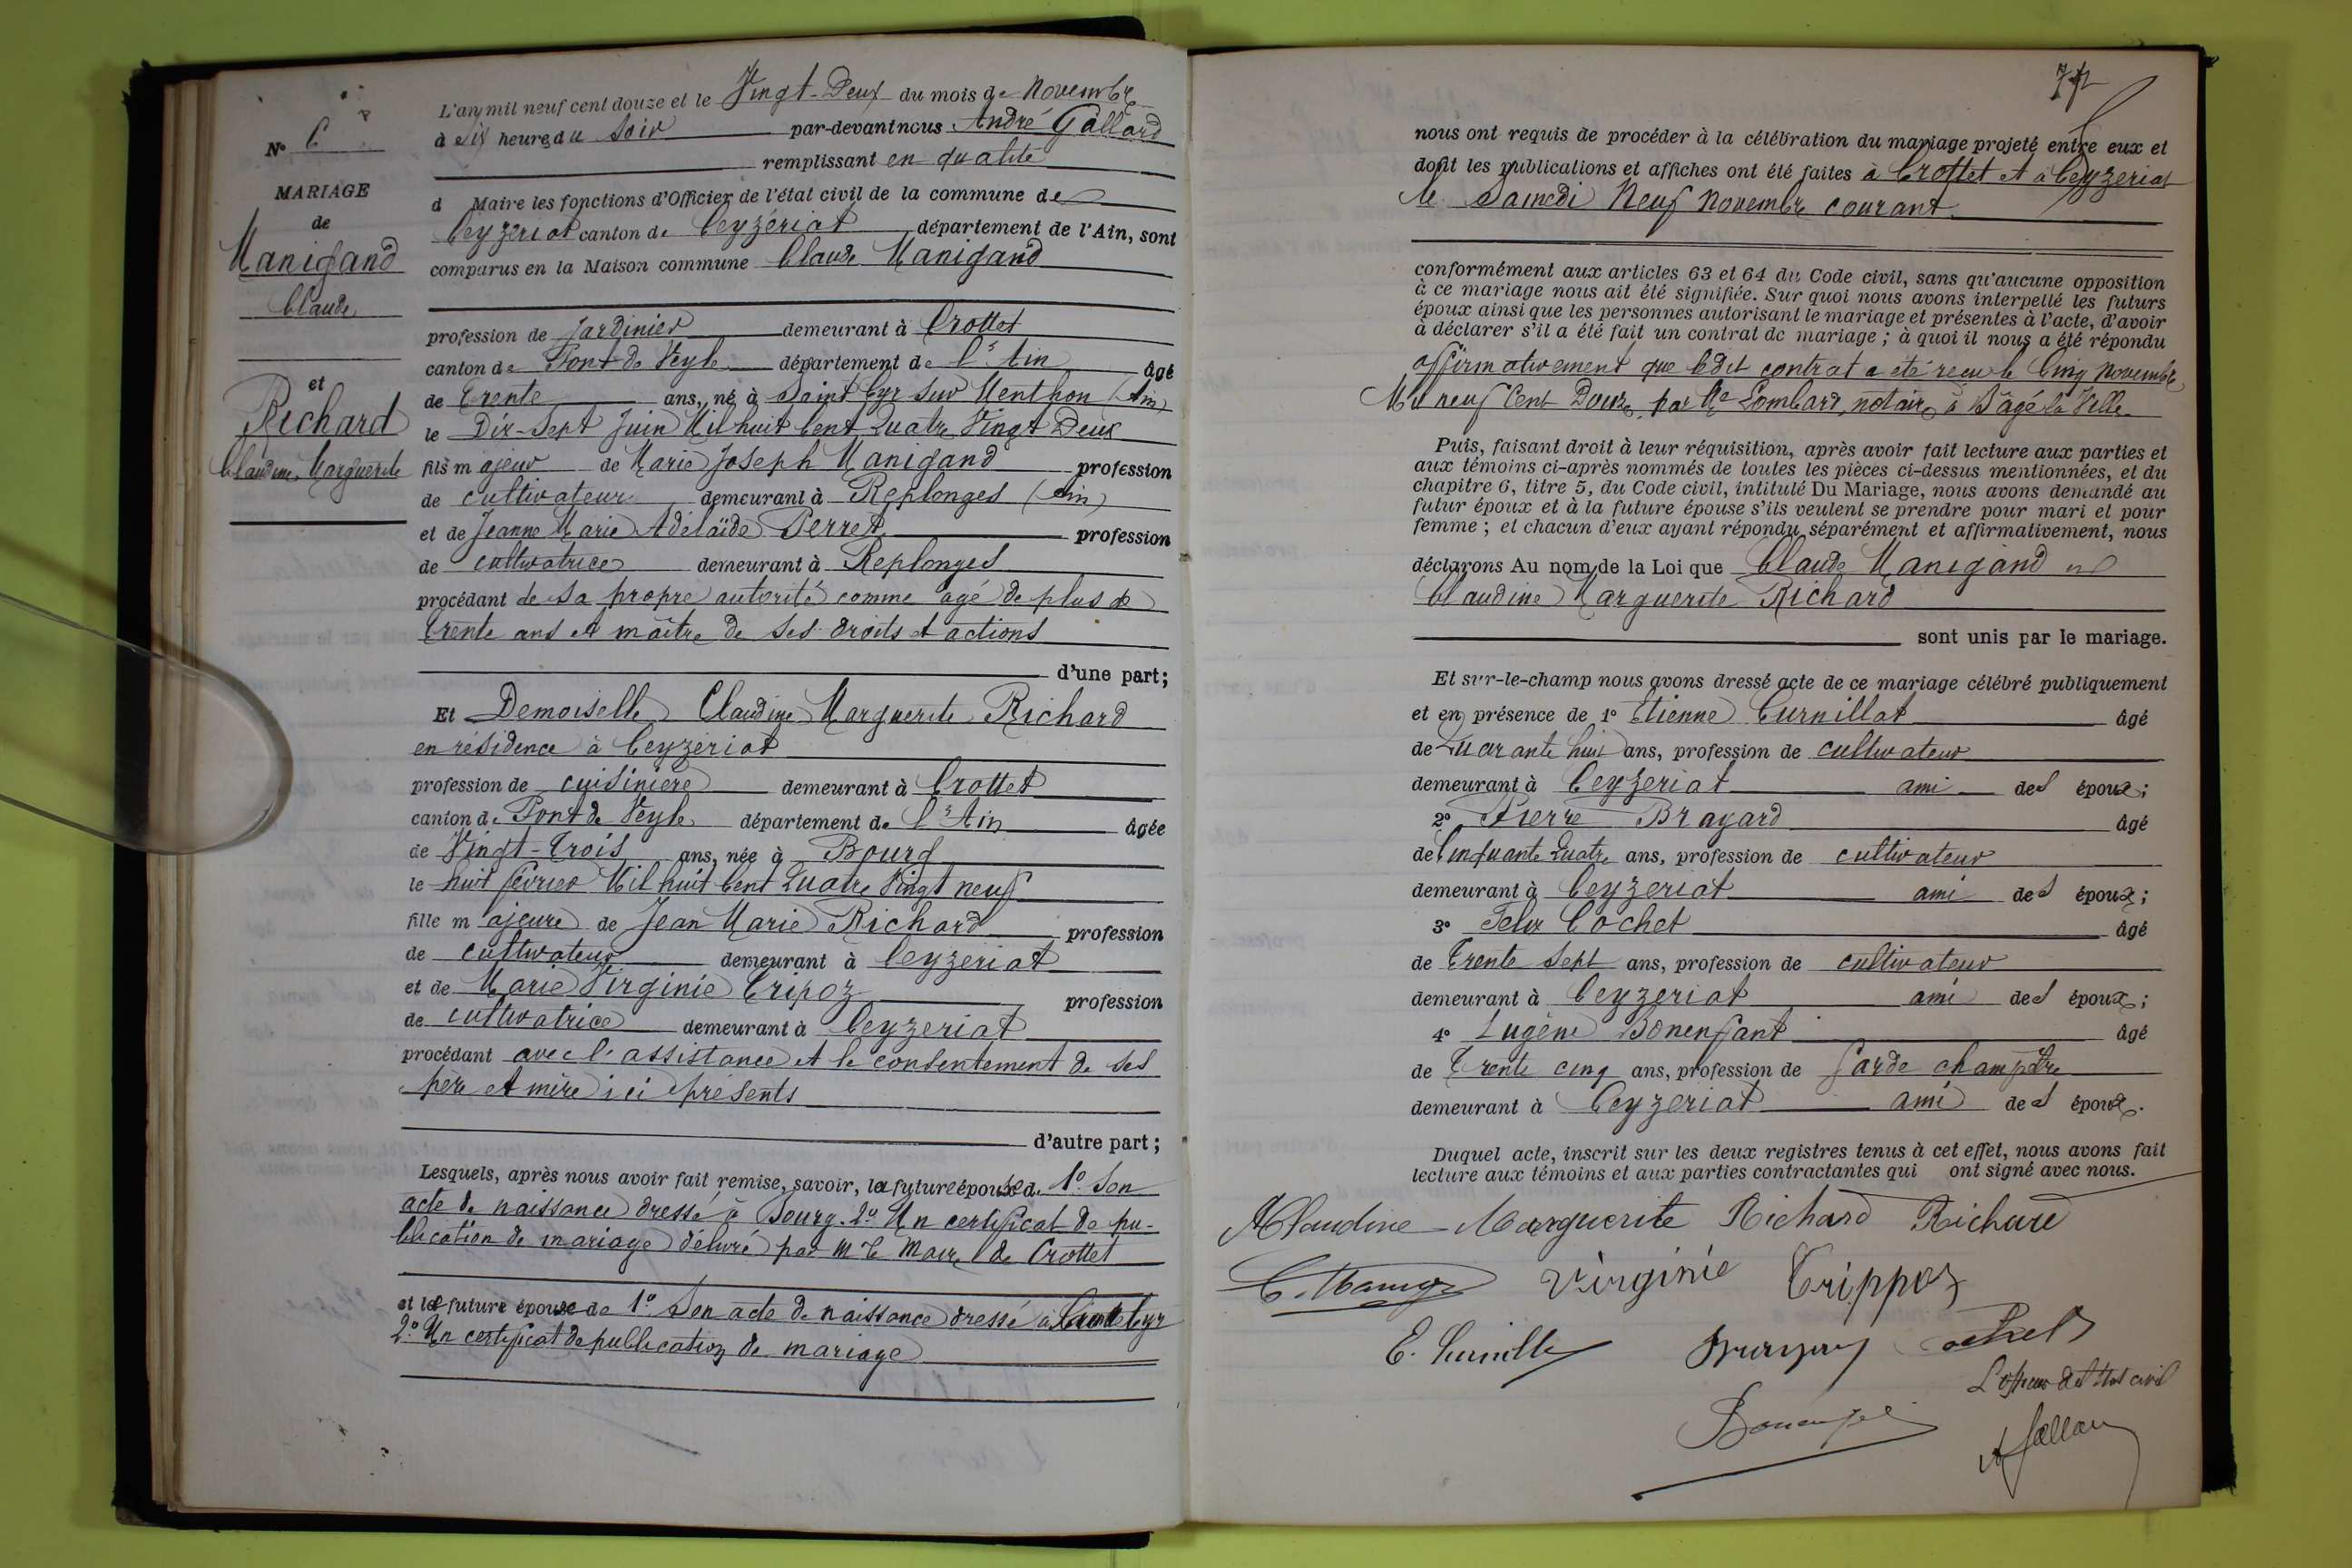 L'an mil neuf cent douze et le Vingt-Deux du mois de Novembre
à Six heures du Soir par-devant nous André Gallard
remplissant en qualité
d Maire les fonctions d'Officier de l'état civil de la commune de
Ceyzériat canton de Ceyzériat département de l'Ain, sont
comparus en la Maison commune Claude Manigand
profession de Jardinier demeurant à Crottet
canton de Pont de Veyle département de l'Ain âgé
de Trente ans, né à Saint Cyr sur Menthon (Ain)
le Dix-Sept Juin Mil huit Cent Quatre Vingt Deux
fils majeur de Marie Joseph Manigand profession
de cultivateur demeurant à Replonges (Ain)
et de Jeanne Marie Adélaïde Perret profession
de cultivatrice demeurant à Replonges
procédant de sa propre autorité comme agé de plus de
Trente ans et maître de ses droits et actions
d'une part;
Et Demoiselle Claudine Marguerite Richard
en résidence à Ceyzériat
profession de cuisinière demeurant à Crottet
canton de Pont de Veyle département de l'Ain âgée
de Vingt-Trois ans, née à Bourg
le huit février Mil huit Cent Quatre Vingt neuf
fille majeure de Jean Marie Richard profession
de cultivateur demeurant à Ceyzeriat
et de Marie Virginie Tripoz profession
de cultivatrice demeurant à Ceyzeriat
procédant avec l'assistance et le consentement de ses
père et mère ici présents
d'autre part;
Lesquels, après nous avoir fait remise, savoir, la future épouse de 1° Son
acte de naissance dressé à Bourg. 2° Un certificat de pu-
blication de mariage délivré par Mr le Maire de Crottet
et le future épouse de 1° Son acte de naissance dressé à Saint Cyr
2° Un certificat de publication de mariage
N° 6
MARIAGE
de
Manigand
Claude
et
Richard
Claudine Marguerite
72
nous ont requis de procéder à la célébration du mariage projeté entre eux et
dont les publications et affiches ont été faites à Crottet et à Ceyzeriat
le Samedi Neuf Novembre courant
conformément aux articles 63 et 64 du Code civil, sans qu'aucune opposition
à ce mariage nous ait été signifiée. Sur quoi nous avons interpellé les futurs
époux ainsi que les personnes autorisant le mariage et présentes à l'acte, d'avoir
à déclarer s'il a été fait un contrat de mariage; à quoi il nous a été répondu
affirmativement que ledit contrat a été recu le Cinq novembre
Mil neuf Cent Douze par Me Lombard, notaire à Bâgé la Ville
Puis, faisant droit à leur réquisition, après avoir fait lecture aux parties et
aux témoins ci-après nommés de toutes les pièces ci-dessus mentionnées, et du
chapitre 6, titre 5, du Code civil, intitulé Du Mariage, nous avons demandé au
futur époux et à la future épouse s'ils veulent se prendre pour mari et pour
femme; et chacun d'eux ayant répondu séparément et affirmativement, nous
déclarons Au nom de la Loi que Claude Manigand et
Claudine Marguerite Richard
sont unis par le mariage.
Et sur-le-champ nous avons dressé acte de ce mariage célébré publiquement
et en présence de 1° Etienne Curnillat âgé
de Quarante huit ans, profession de cultivateur
demeurant à Ceyzeriat ami des époux;
2° Pierre Brayard âgé
de Cinquante Quatre ans, profession de cultivateur
demeurant à Ceyzeriat ami des époux;
3° Felix Cochet âgé
de Trente Sept ans, profession de cultivateur
demeurant à Ceyzeriat ami des époux;
4° Eugène Bonenfant âgé
de Trente cinq ans, profession de Garde champêtre
demeurant à Ceyzeriat ami des époux.
Duquel acte, inscrit sur les deux registres tenus à cet effet, nous avons fait
lecture aux témoins et aux parties contractantes qui ont signé avec nous.
Claudine-Marguerite Richard Richard
Virginie Trippoz
L'officier de l'Etat civil
A Gallard